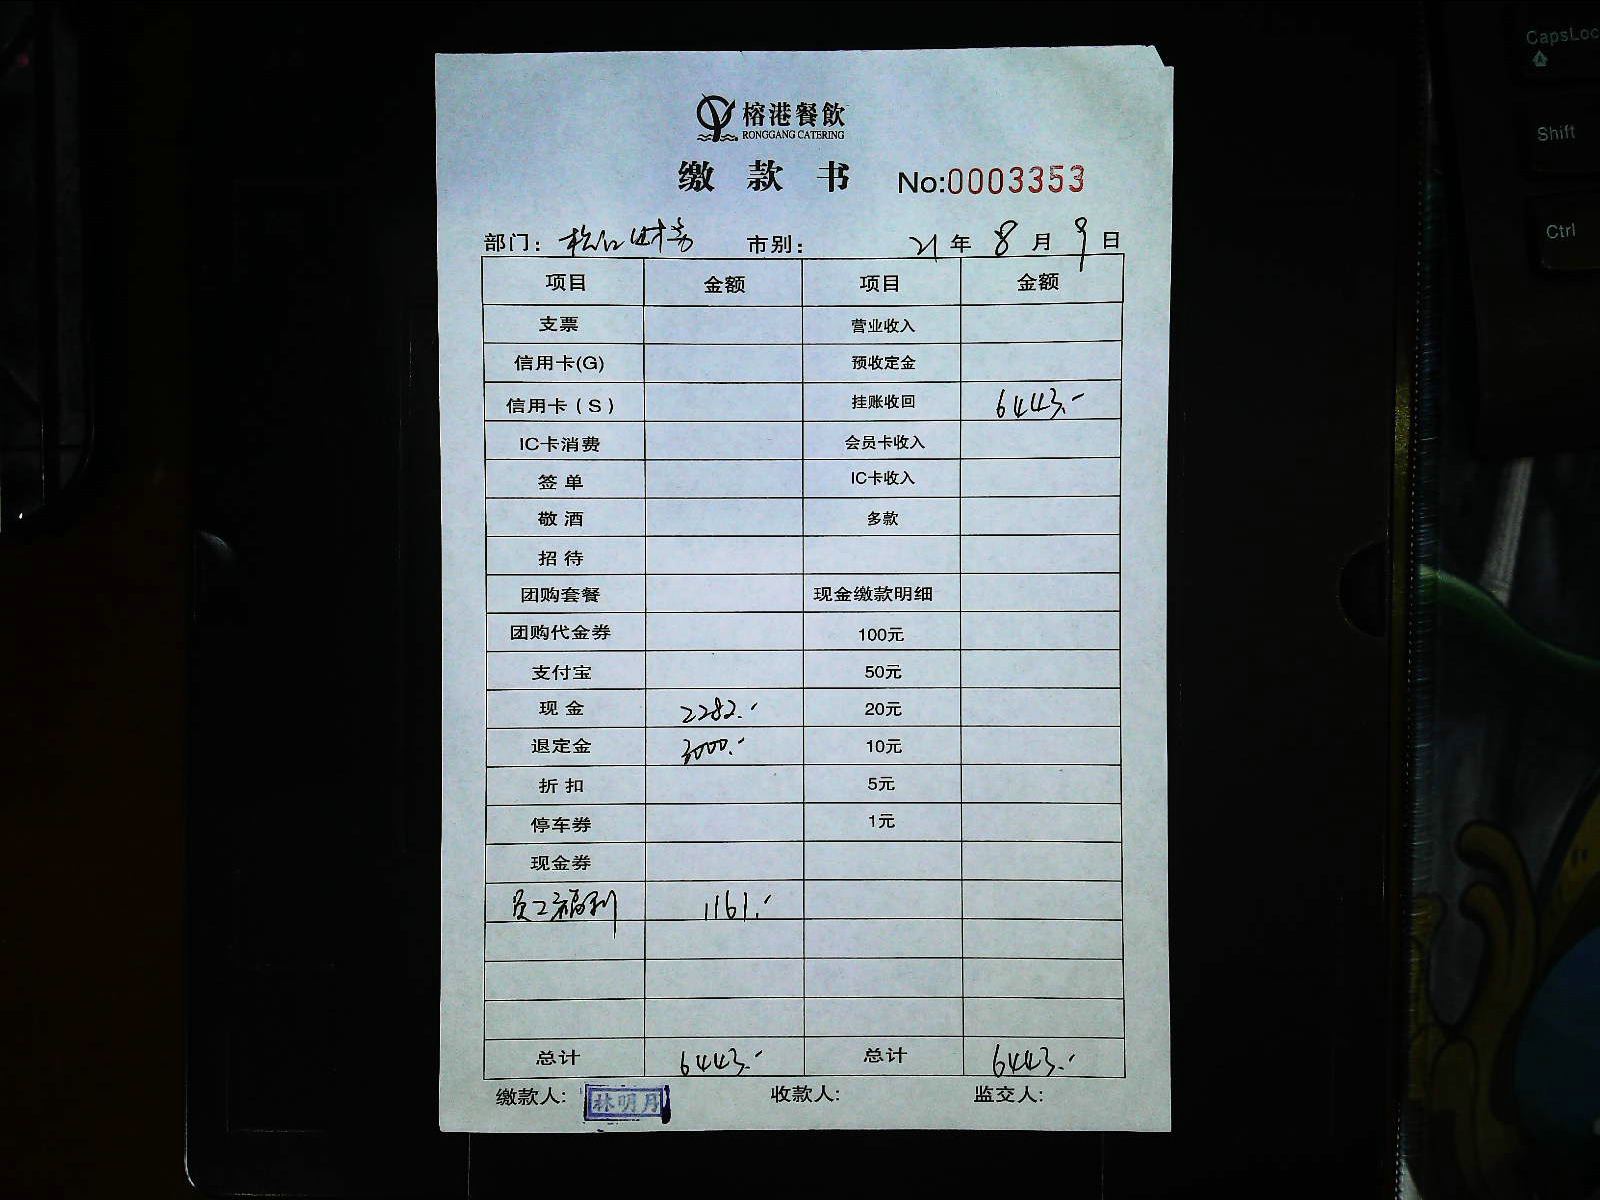 榕港餐飲
RONGGANG CATERING
缴款书 No:0003353
部门：松江财务 市别： 21年8月9日
项目 金额 项目 金额
支票 营业收入
信用卡(G) 预收定金
信用卡（S） 挂账收回 6443.-
IC卡消费 会员卡收入
签单 IC卡收入
敬酒 多款
招待
团购套餐 现金缴款明细
团购代金券 100元
支付宝 50元
现金 2282.- 20元
退定金 3000.- 10元
折扣 5元
停车券 1元
现金券
员工福利 1161.-
总计 6443.- 总计 6443.-
缴款人: 林明月 收款人: 监交人:
CapsLoc
Shift
Ctrl